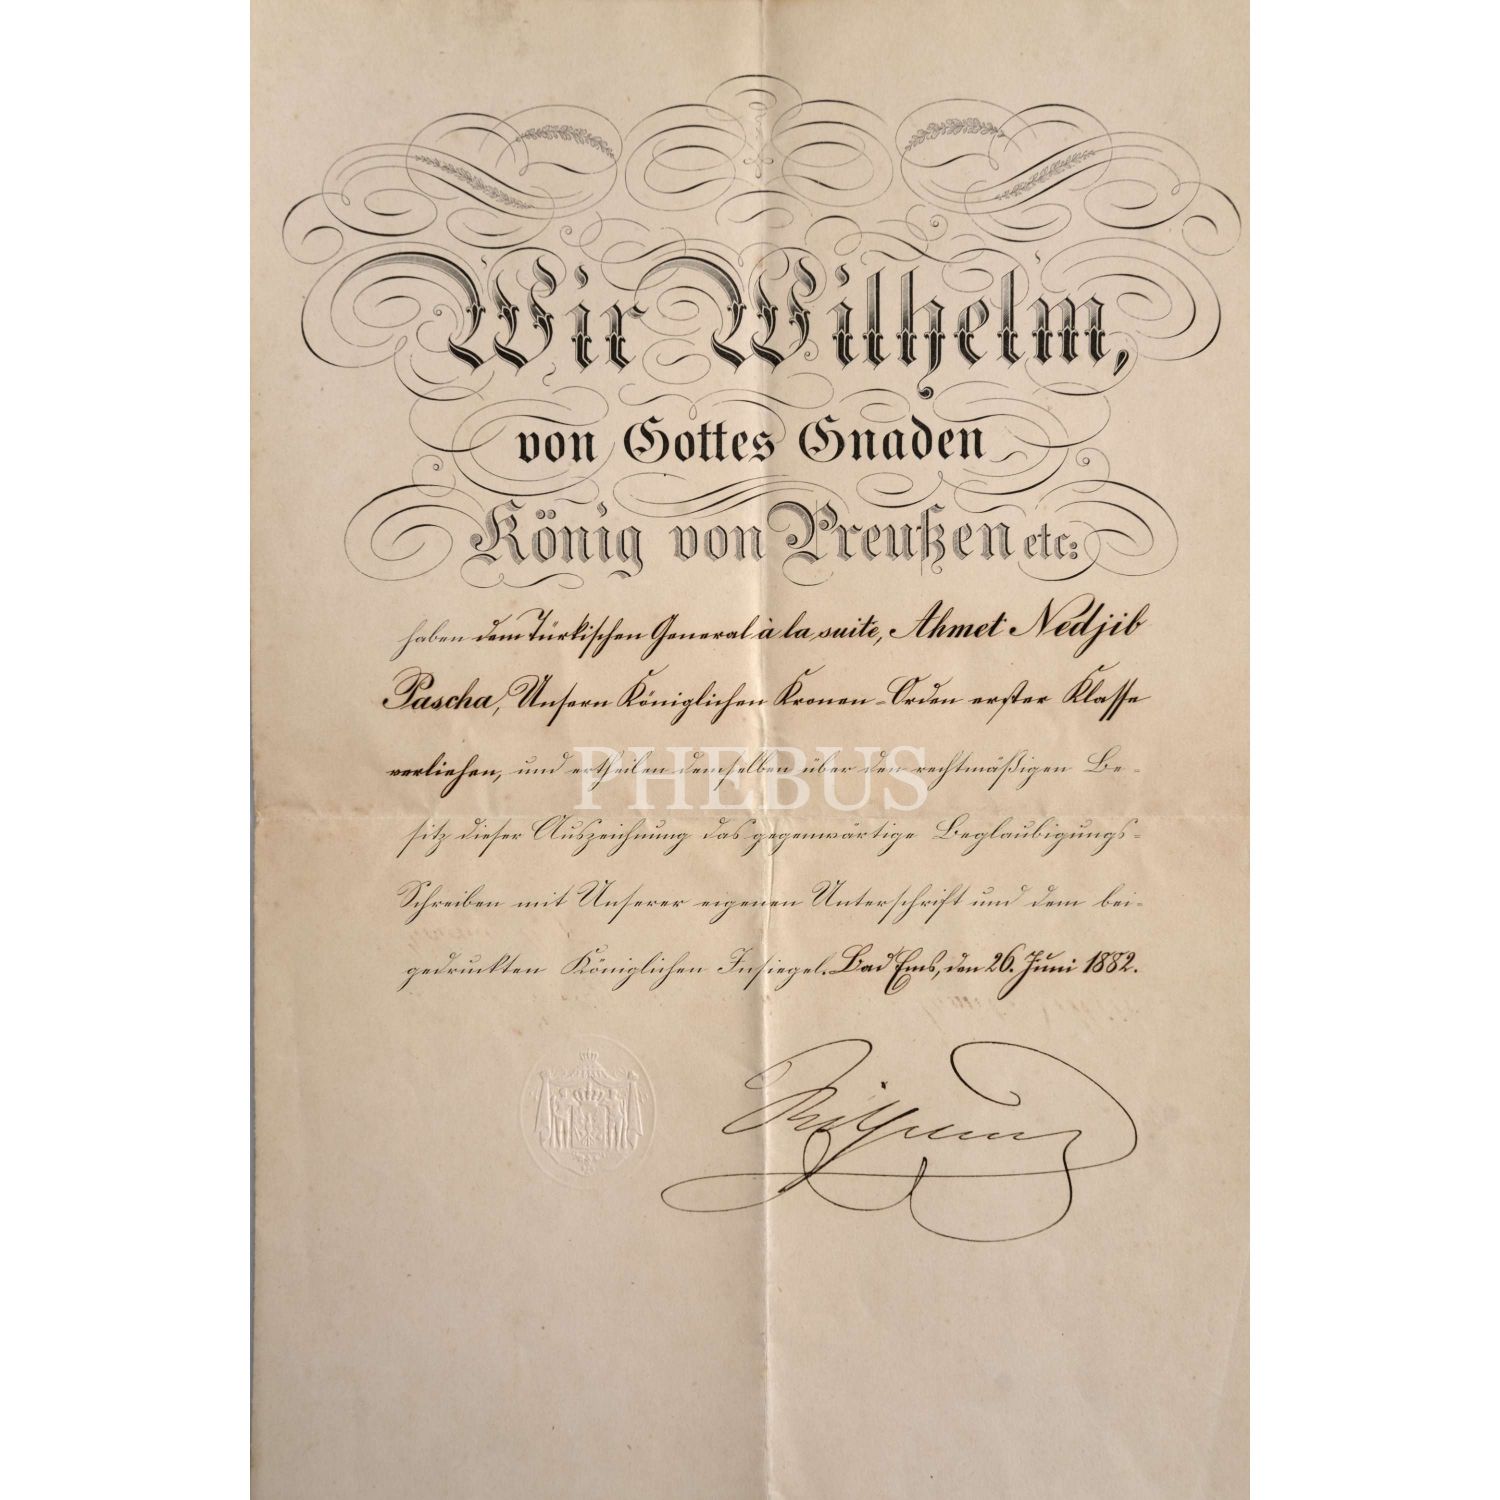 Wir Wilhelm,
von Gottes Gnaden
König von Preußen etc:
haben dem Türkischen General à la suite, Ahmet Nedjib
Pascha, Unsern Königlichen Kronen-Orden erster Klasse
verliehen, und ertheilen demselben über den rechtmäßigen Be-
PHEBUS
sitz dieser Auszeichnung das gegenwärtige Beglaubigungs-
Schreiben mit Unserer eigenen Unterschrift und dem bei-
gedruckten Königlichen Insiegel. Bad Ems, den 26. Juni 1882.
Wilhelm